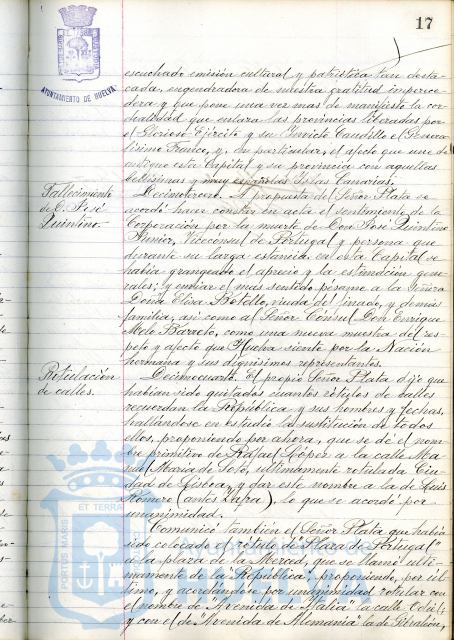 17
AYUNTAMIENTO DE HUELVA
escuchado emisión cultural y patriótica tan desta-
cada, engendradora de nuestra gratitud imperece-
dera y que pone una vez mas de manifiesto la cor-
dialidad que enlaza las provincias liberadas por
el Glorioso Ejército y su Invicto Caudillo el Genera-
lísimo Franco, y, en particular, el afecto que une de
antiguo esta Capital y su provincia con aquellas
bellísimas y muy españolas Islas Canarias.
Fallecimiento
de D. José
Quintino.
Decimotercero. A propuesta del Señor Plata se
acordó hacer constar en acta el sentimiento de la
Corporación por la muerte de Don José Quintino
Junior, Vicecónsul de Portugal y persona que
durante su larga estancia en esta Capital se
había grangeado el aprecio y la estimación gene-
rales; y enviar el mas sentido pésame a la Señora
Doña Elisa Botello, viuda del finado, y demás
familia, así como al Señor Cónsul Don Enrique
Melo Barreto, como una nueva muestra del res-
peto y afecto que Huelva siente por la Nación
hermana y sus dignísimos representantes.
Rotulación
de calles.
Decimocuarto. El propio Señor Plata dijo que
habían sido quitados cuantos rótulos de calles
recuerdan la República y sus hombres y fechas,
hallándose en estudio la sustitución de todos
ellos, proponiendo por ahora, que se dé el nom-
bre primitivo de Rafael López a la calle Ma-
nuel María de Soto, ultimamente rotulada Ciu-
dad de Lisboa, y dar este nombre a la de Luis
Romero (antes Zafra), lo que se acordó por
unanimidad.
Comunicó también el Señor Plata que había
sido colocado el rótulo de "Plaza de Portugal"
a la plaza de la Merced, que se llamó ulti-
mamente de la República; proponiendo, por úl-
timo, y acordándose por unanimidad rotular con
el nombre de "Avenida de Italia" la calle Odiel;
y con el de "Avenida de Alemania" la de
PORTUS MARIS ET TERRAE
Ayuntamiento